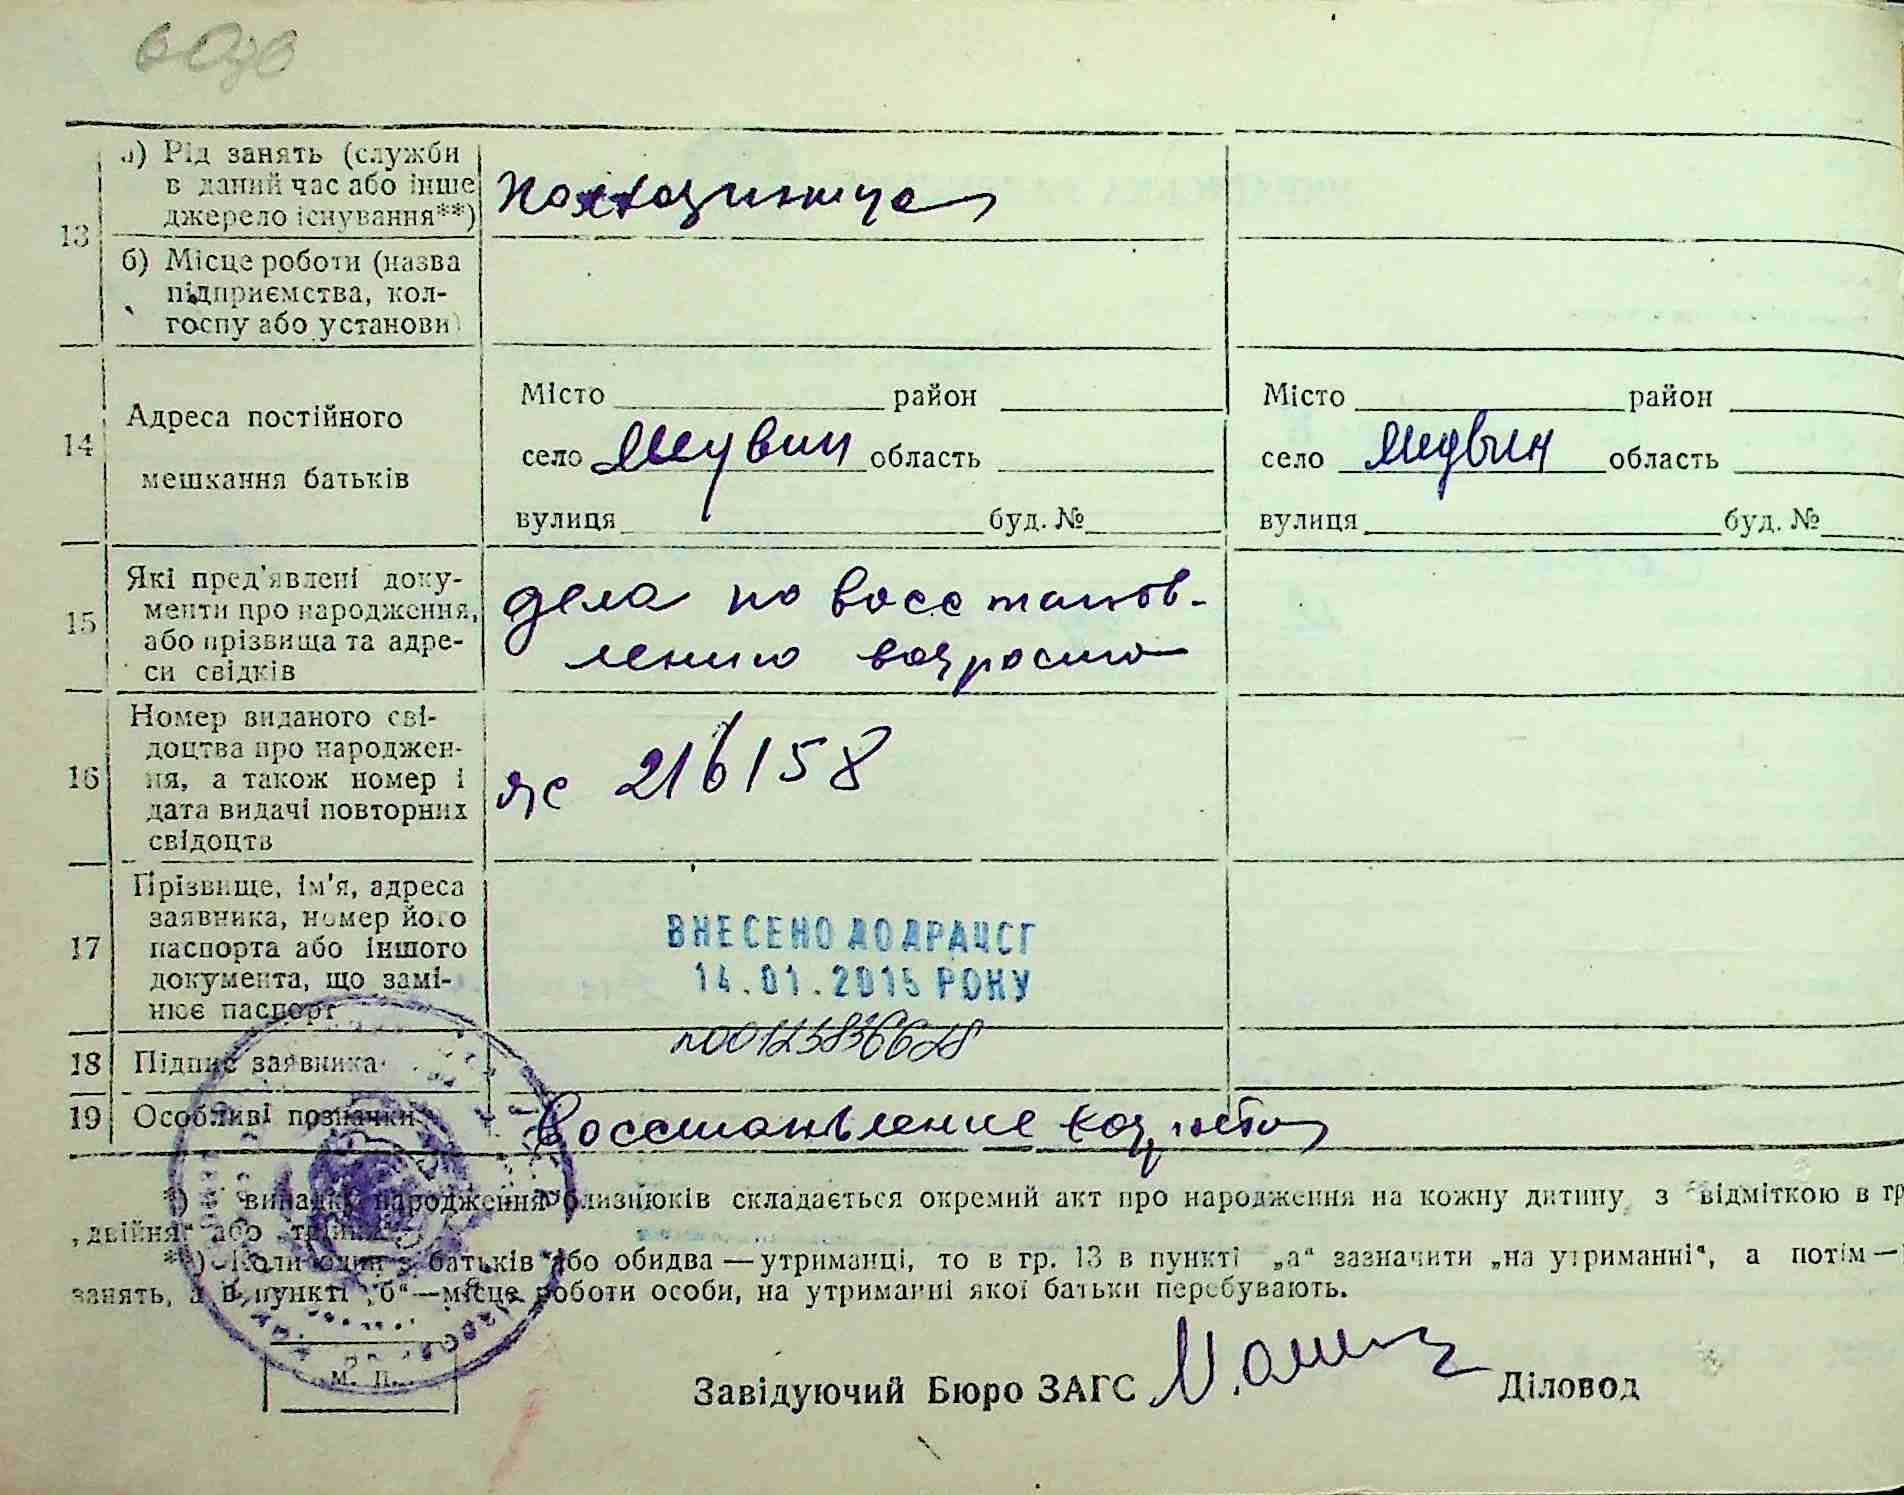 а) Рід занять (служби
в даний час або інше
джерело існування**)
13
колхозница
б) Місце роботи (назва
підприємства, кол-
госпу або установи)
14
Адреса постійного
мешкання батьків
Місто район
село Медвин область
вулиця буд. №
Місто район
село Медвин область
вулиця буд. №
15
Які пред'явлені доку-
менти про народження,
або прізвища та адре-
си свідків
дела по восстанов-
лению возраста
16
Номер виданого сві-
доцтва про народжен-
ня, а також номер і
дата видачі повторних
свідоцтв
216158
17
Прізвище, ім'я, адреса
заявника, номер його
паспорта або іншого
документа, що замі-
нює паспорт
ВНЕСЕНО ДО ДРАЦСГ
14.01.2015 РОКУ
18 Підпис заявника
19 Особливі позначки
Восстановление возраста
*) У випадку народження близнюків складається окремий акт про народження на кожну дитину, з відміткою в гр
„двійня“ або „трійня“.
**) Коли один з батьків або обидва — утриманці, то в гр. 13 в пункті „а“ зазначити „на утриманні“, а потім —
занять, а в пункті „б“ — місце роботи особи, на утриманні якої батьки перебувають.
М. П.
Завідуючий Бюро ЗАГС Діловод